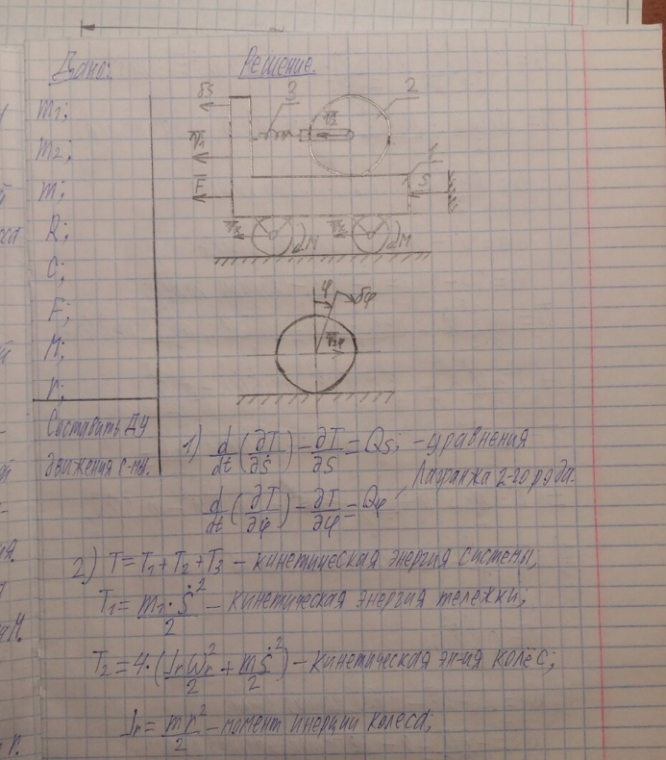 Дано: Решение.
m₁;
m₂;
m;
R;
C;
F;
M;
r;
Составить ДУ
движения с-мы.
3 2
δS
F
1
S
M M
φ δφ
1) d/dt(∂T/∂Ṡ) - ∂T/∂S = Qs; - уравнения
Лагранжа 2-го рода.
d/dt(∂T/∂φ̇) - ∂T/∂φ = Qφ,
2) T = T₁ + T₂ + T₃ - кинетическая энергия системы,
T₁ = m₁·Ṡ²/2 - кинетическая энергия тележки;
T₂ = 4·(Jrωr²/2 + mṠ²/2) - кинетическая эн-ия колёс;
Jr = mr²/2 - момент инерции колеса;